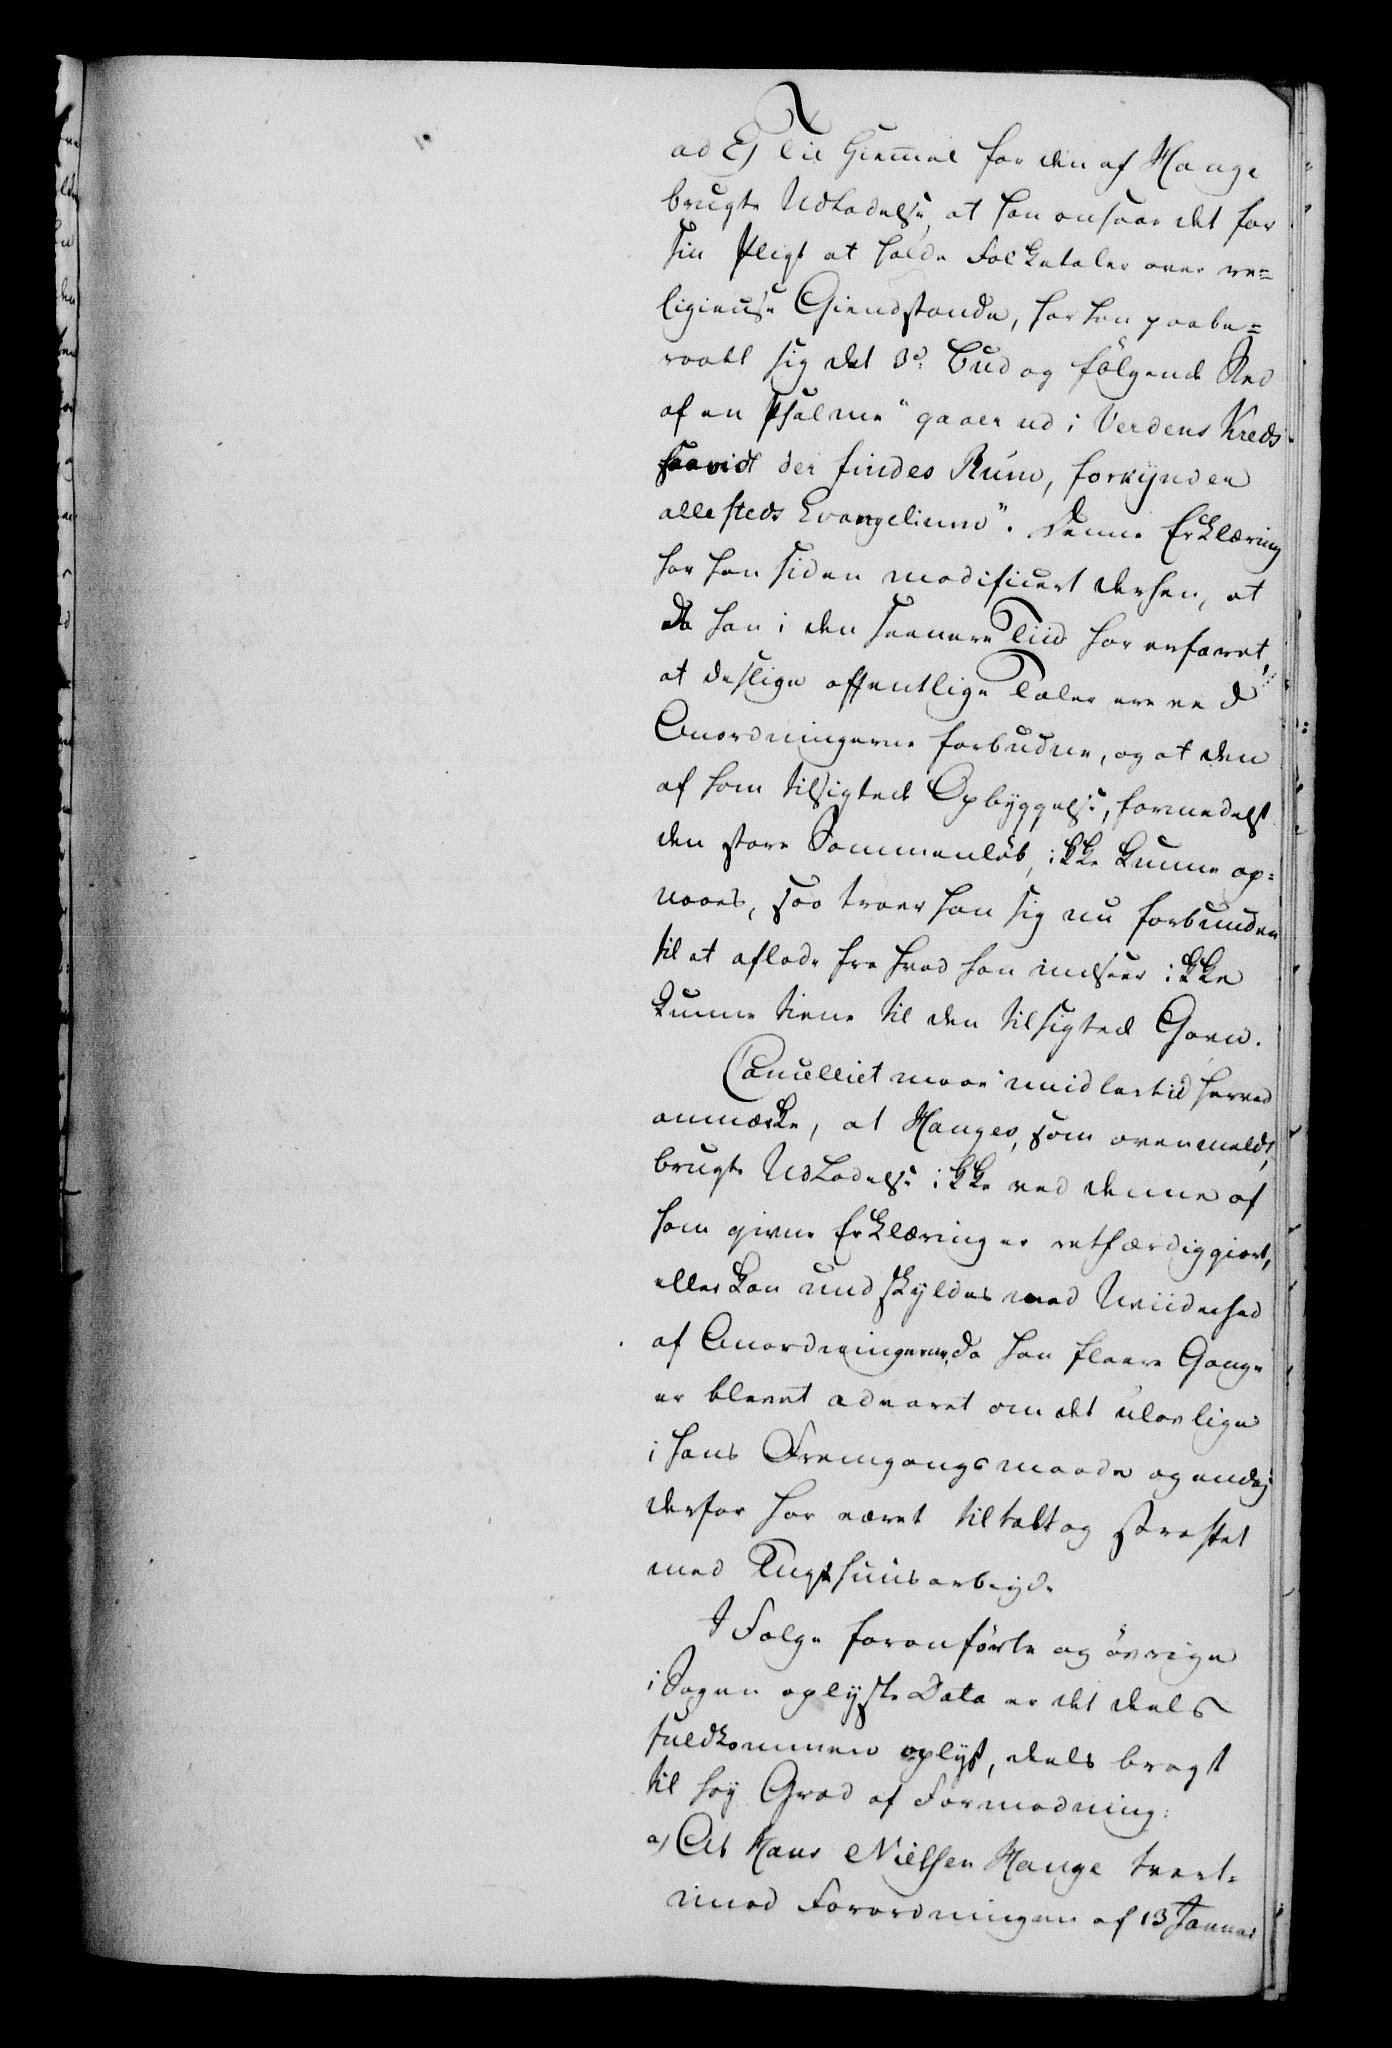 ad E) Til Hiemmel for den af Hauge
brugte Udladelse, at han ansaae det for
sin Pligt at holde Folketaler over re=
ligieuse Gienstande, har han paabe=
raabt sig det 3d. Bud og følgende Sted
af en Psalme "gaaer ud i Verdens Kreds
saavidt der findes Rúm, forkynder
allesteds Evangelium". Denne Erklæring
har han siden modificeret derhen, at
da han i den seenere Tiid har erfaret,
at deslige offentlige Taler ere ved
Anordningerne forbudne, og at den
af ham tilsigtede Opbyggelse, formedelst
den store Sammenløb, ikke kunne op=
naaes, saa troer han sig nu forbunden
til at aflade fra hvad han indseer ikke
kunne tiene til den tilsigtede Gavn.
Cancelliet maae imidlertid herved
anmærke, at Hauges, som ovenmeldt,
brugte Udladelse ikke ved denne af
ham givne Erklæring er retfærdiggiort,
eller kan undskyldes med Uviidenhed
af Anordningerne, da han fleere Gange
er blevet advaret om det ulovlige
i hans Fremgangsmaade og endog
derfor har været tiltalt og straffet
med Tugthuusarbeyde
I Følge foranførte og øvrige
i Sagen oplyste Data er det deels
fuldkommen oplyst, deels bragt
til høy Grad af Formodning:
a) At Hans Nielsen Hauge tvert=
imod Forordningen af 13 Januar